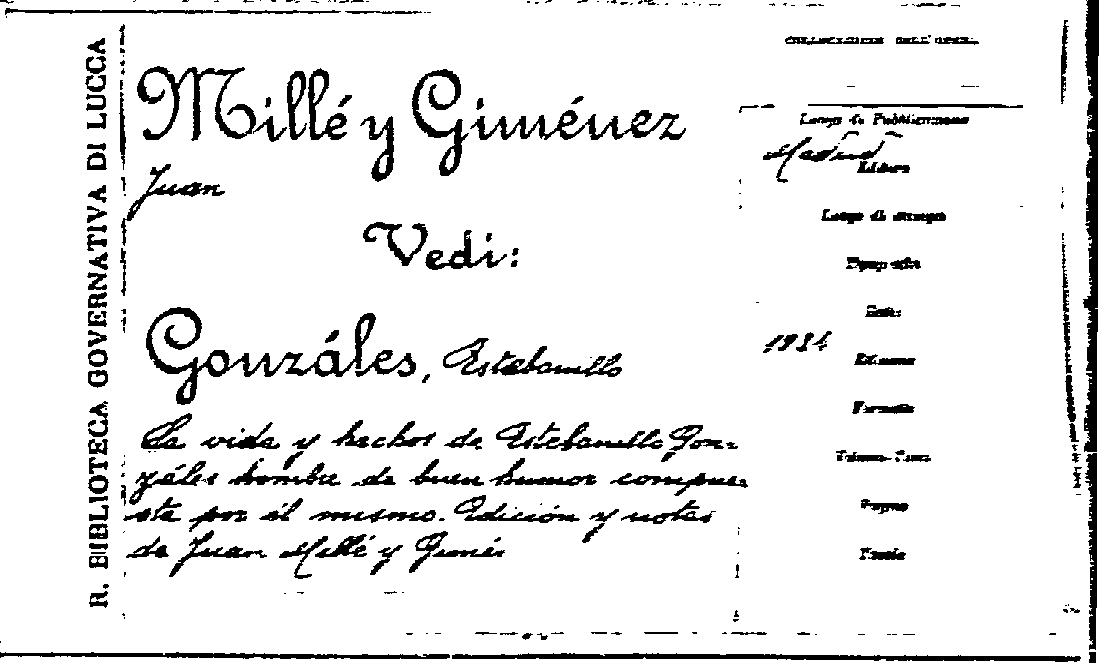 R. BIBLIOTECA GOVERNATIVA DI LUCCA
Millé y Giménez
Juan
Vedi:
Gonzáles, Estebanillo
La vida y hechos de Estebanillo Gon-
záles hombre de buen humor compue-
sta por él mismo. Edición y notas
de Juan Millé y Gimén
COLLOCAZIONE DELL'OPERA
Luogo di Pubblicazione
Madrid
Editore
Luogo di stampa
Tipografia
Data
1934
Edizione
Formato
Volumi-Tomi
Pagine
Tavole